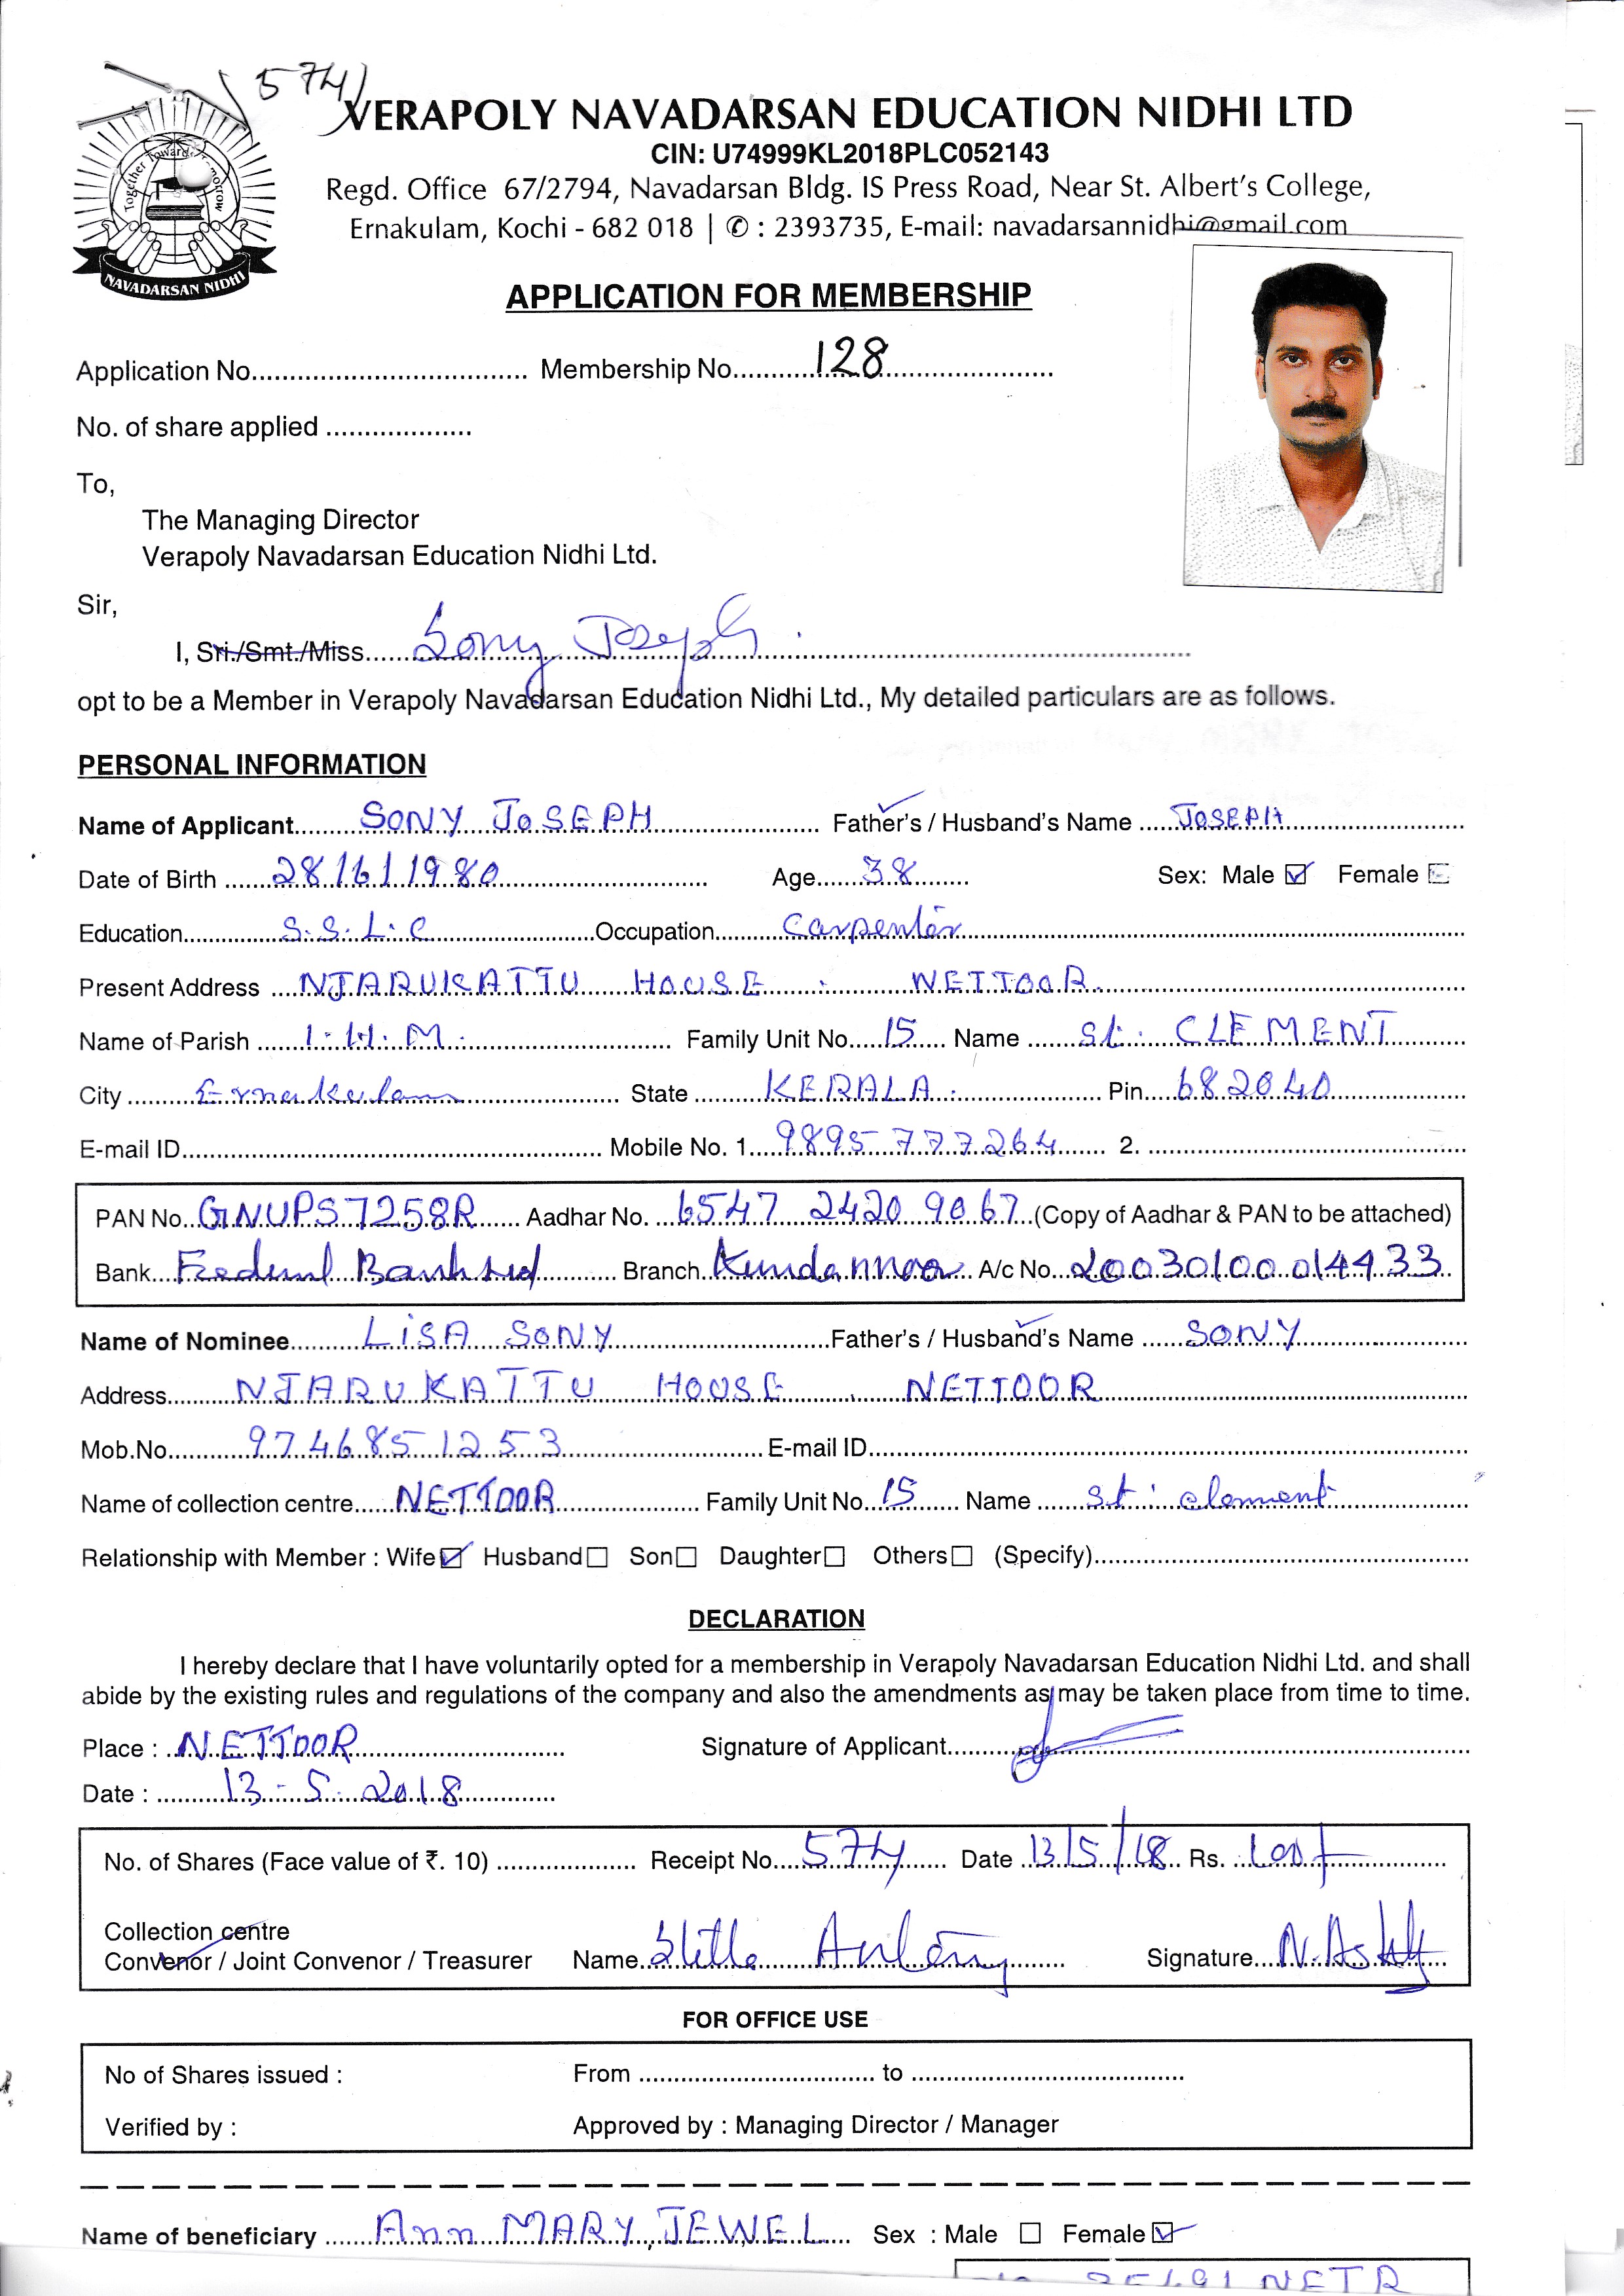 574
VERAPOLY NAVADARSAN EDUCATION NIDHI LTD
CIN: U74999KL2018PLC052143
Regd. Office 67/2794, Navadarsan Bldg. IS Press Road, Near St. Albert's College,
Ernakulam, Kochi - 682 018 | ✆ : 2393735, E-mail: navadarsannidhi@gmail.com
Together Towards Tomorrow
NAVADARSAN NIDHI
APPLICATION FOR MEMBERSHIP
Application No. Membership No. 128
No. of share applied
To,
The Managing Director
Verapoly Navadarsan Education Nidhi Ltd.
Sir,
I, Sri./Smt./Miss. Sony Joseph
opt to be a Member in Verapoly Navadarsan Education Nidhi Ltd., My detailed particulars are as follows.
PERSONAL INFORMATION
Name of Applicant SONY JOSEPH Father's / Husband's Name JOSEPH
Date of Birth 28/6/1980 Age 38 Sex: Male ☑ Female ☐
Education S.S.L.C Occupation Carpenter
Present Address NJARUKATTU HOUSE NETTOOR.
Name of Parish I.H.M. Family Unit No. 15 Name St. CLEMENT
City Ernakulam State KERALA. Pin 682040
E-mail ID Mobile No. 1 9895777264 2.
PAN No. GNUPS7258R Aadhar No. 6547 2420 9067 (Copy of Aadhar & PAN to be attached)
Bank Federal Bank Ltd Branch Kundannoor A/c No. 20030100014433
Name of Nominee LISA SONY Father's / Husband's Name SONY
Address NJARUKATTU HOUSE NETTOOR
Mob.No. 9746851253 E-mail ID
Name of collection centre NETTOOR Family Unit No. 15 Name St. clement
Relationship with Member : Wife ☑ Husband ☐ Son ☐ Daughter ☐ Others ☐ (Specify)
DECLARATION
I hereby declare that I have voluntarily opted for a membership in Verapoly Navadarsan Education Nidhi Ltd. and shall
abide by the existing rules and regulations of the company and also the amendments as may be taken place from time to time.
Place : NETTOOR Signature of Applicant
Date : 13-5-2018
No. of Shares (Face value of ₹. 10) Receipt No. 574 Date 13/5/18 Rs. 100/-
Collection centre
Convenor / Joint Convenor / Treasurer Name Stella Antony Signature
FOR OFFICE USE
No of Shares issued : From to
Verified by : Approved by : Managing Director / Manager
Name of beneficiary Ann MARY JEWEL Sex : Male ☐ Female ☑